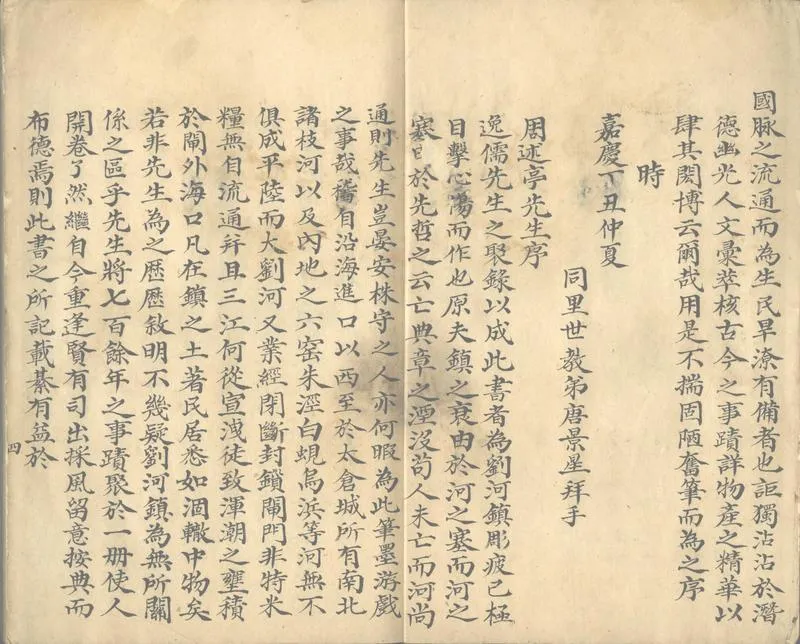 國脉之流通而為生民旱潦有備者也詎獨沾沾於潛
德幽光人文彙萃核古今之事蹟詳物產之精華以
肆其閎博云爾哉用是不揣固陋奮筆而為之序
時
嘉慶丁丑仲夏
同里世教弟唐景星拜手
周述亭先生序
逸儒先生之聚錄以成此書者為劉河鎮彫疲已極
目擊心傷而作也原夫鎮之衰由於河之塞而河之
塞已於先哲之云亡典章之湮沒苟人未亡而河尚
通則先生豈晏安株守之人亦何暇為此筆墨游戲
之事哉稽自沿海進口以西至於太倉城所有南北
諸枝河以及內地之六窑朱涇白蜆烏浜等河無不
俱成平陸而大劉河又業經閉斷封鎖閘門非特米
糧無自流通并且三江何從宣洩徒致渾潮之壅積
於閘外海口凡在鎮之土著民居悉如涸轍中物矣
若非先生為之歷歷敘明不幾疑劉河鎮為無所關
係之區乎先生將七百餘年之事蹟聚於一冊使人
開卷了然繼自今重逢賢有司出採風留意按典而
布德焉則此書之所記載綦有益於
四